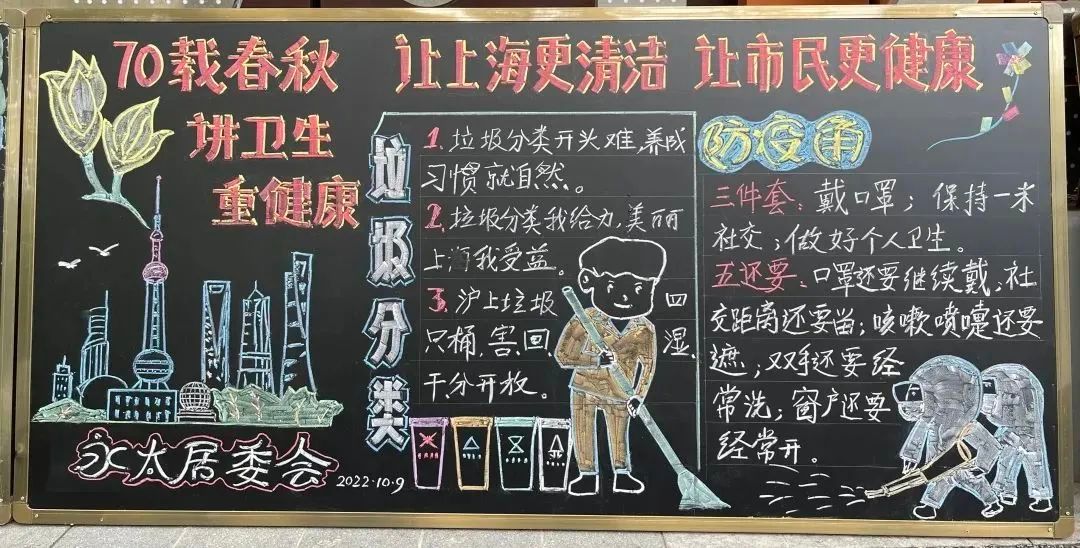 70载春秋 让上海更清洁 让市民更健康
讲卫生
重健康
永太居委会
2022.10.9
垃圾分类
1.垃圾分类开头难,养成
习惯就自然。
2.垃圾分类我给力,美丽
上海我受益。
3.沪上垃圾 四
只桶,害、回 湿、
干分开放。
防疫角
三件套:戴口罩;保持一米
社交;做好个人卫生。
五还要:口罩还要继续戴;社
交距离还要留;咳嗽喷嚏还要
遮;双手还要经
常洗;窗户还要
经常开。